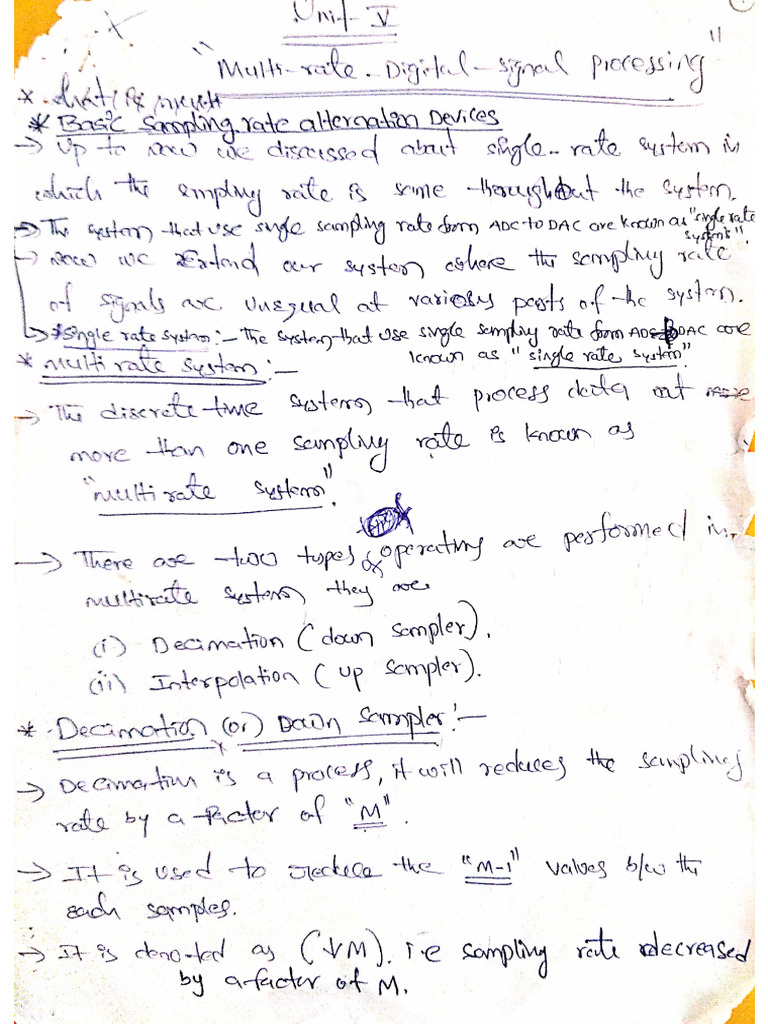 Unit - V
"Multi-rate-Digital-signal processing"
*
* Basic Sampling rate alternation Devices
→ Up to now we discussed about single-rate system in
which the smpling rate is same throughout the system.
→ The system that use single sampling rate from ADC to DAC are known as "single rate
systems".
→ now we Extend our system where the sampling rate
of signals are unequal at various parts of the system.
→ * Single rate system :- The system that use single sampling rate from ADC to DAC are
known as "single rate system"
* multi rate system :-
→ The discrete-time system that process data at
more than one sampling rate is known as
"multi rate system".
→ There are two types of operating are performed in
multirate system they are
(i) Decimation (down sampler).
(ii) Interpolation (up sampler).
* Decimation (or) Down Sampler :-
→ Decimation is a process, it will reduces the sampling
rate by a factor of "M".
→ It is used to the "M-1" values b/w the
each samples.
→ It is denoted as (↓M). i.e sampling rate decreased
by a factor of M.